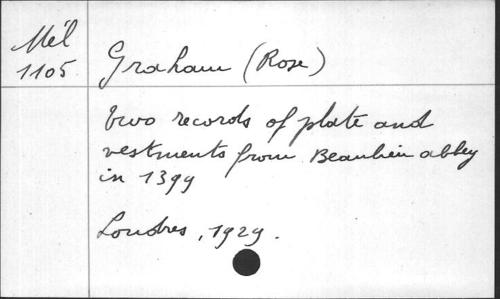 Mél
1105
Graham (Rose)
two records of plate and
vestments from Beaulieu abbey
in 1399
Londres, 1929.